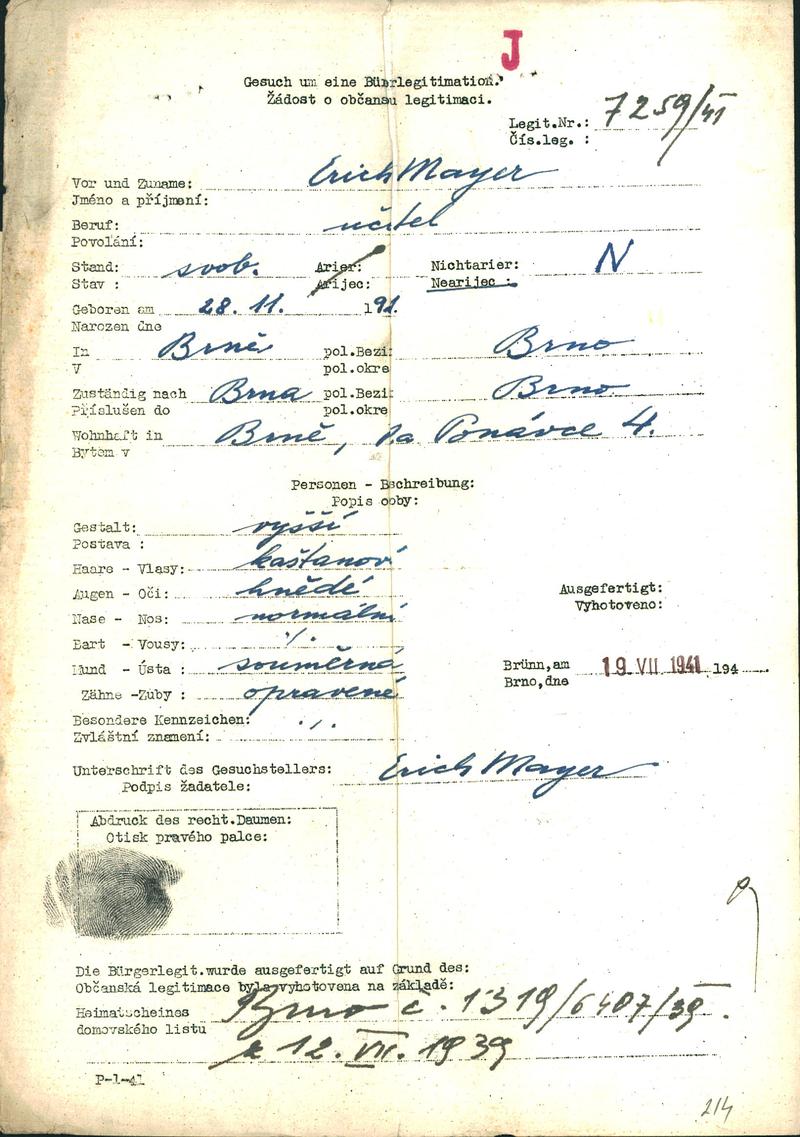 J
Gesuch um eine Bürrlegitimation.
Žádost o občansu legitimaci.
Legit.Nr.: 7259/VI
Čís.leg. :
Vor und Zuname: Erich Mayer
Jméno a příjmení:
Beruf: učitel
Povolání:
Stand: svob. Arier: Nichtarier: N
Stav : Arijec: Nearijec :
Geboren am 28. 11. 191.
Narozen dne
In Brně pol.Bezi: Brno
V pol.okre
Zuständig nach Brna pol.Bezi: Brno
Příslušen do pol.okre
Wohnhaft in Brně, Na Ponávce 4.
Bytem v
Personen - Bschreibung:
Popis ooby:
Gestalt: vyšší
Postava :
Haare - Vlasy: kaštanové
Augen - Oči: hnědé
Ausgefertigt:
Vyhotoveno:
Nase - Nos: normální
Bart - Vousy: ·/.
Mund - Ústa : souměrná
Brünn,am 19. VII 1941 194
Brno,dne
Zähne -Zuby : opravené
Besondere Kennzeichen: ·/.
Zvláštní znamení:
Unterschrift des Gesuchstellers: Erich Mayer
Podpis žadatele:
Abdruck des recht.Daumen:
Otisk pravého palce:
Die Bürgerlegit.wurde ausgefertigt auf Grund des:
Občanská legitimace byla vyhotovena na základě:
Heimatscheines Brno č. 1319/6407/39.
domovského listu
z 12. VII. 1939
P-1-41
214